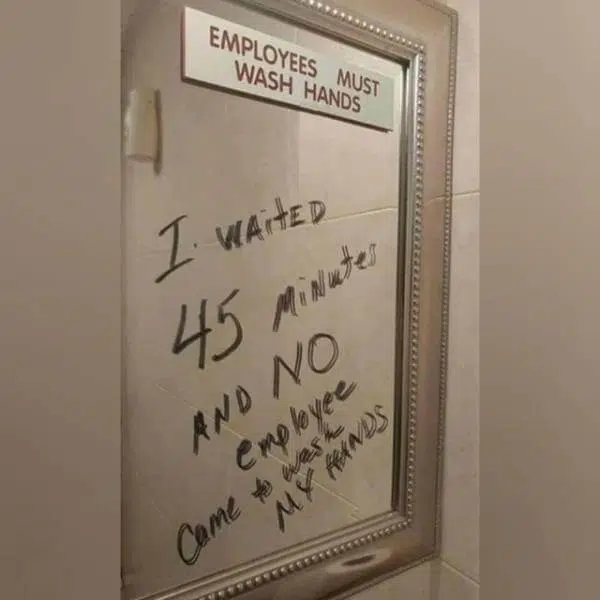 EMPLOYEES MUST
WASH HANDS
I. WAITED
45 MiNutes
AND NO
employee
Came to wash
MY HANDS